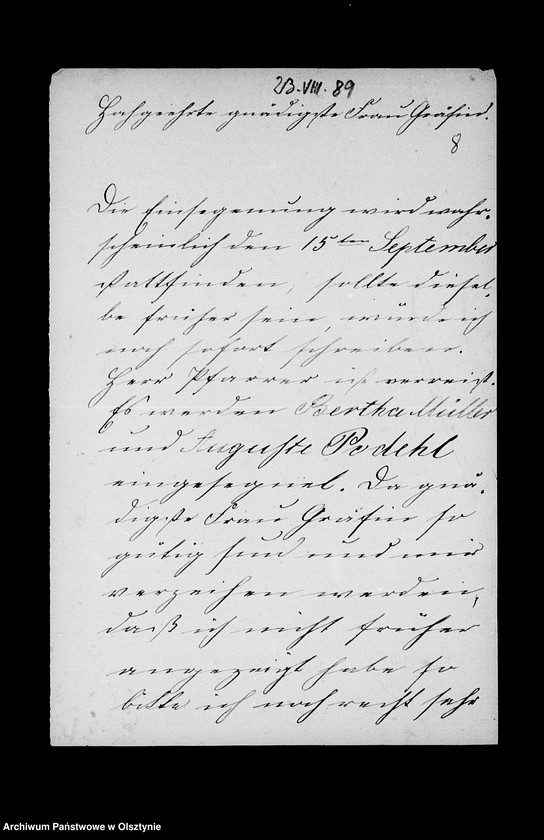 23.VIII.89
Hochgeehrte gnädigste Frau Gräfin.
8
Die Einsegenung wird wahr-
scheinlich den 15ten September
stattfinden, sollte diesel-
be früher sein, würde ich
noch sofort schreiben.
Herr Pfarrer ist verreist.
Es werden Bertha Müller
und Auguste Podehl
eingesegnet. Da gnä-
digste Frau Gräfin so
gütig sind und mir
verzeihen werden,
daß ich nicht früher
angezeigt habe so
bitte ich noch recht sehr
Archiwum Państwowe w Olsztynie